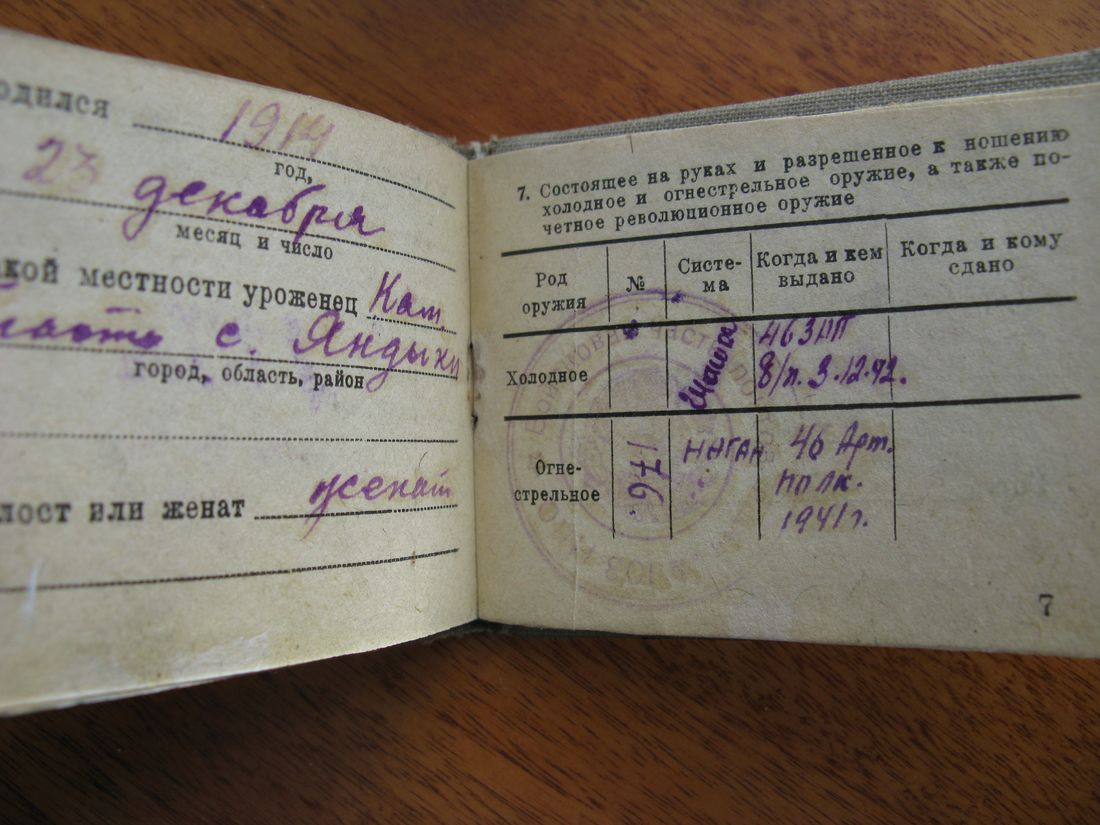 одился 1914
год,
23 декабря
месяц и число
кой местности уроженец Кал.
с. Яндыки
город, область, район
лост или женат женат
7. Состоящее на руках и разрешенное к ношению
холодное и огнестрельное оружие, а также по-
четное революционное оружие
Род оружия № Систе-ма Когда и кем выдано Когда и кому сдано
Холодное Шашка 46 ЗАП
8/п. 3.12.42.
Огне-
стрельное 176. наган 46 Арт.
полк.
1941 г.
7